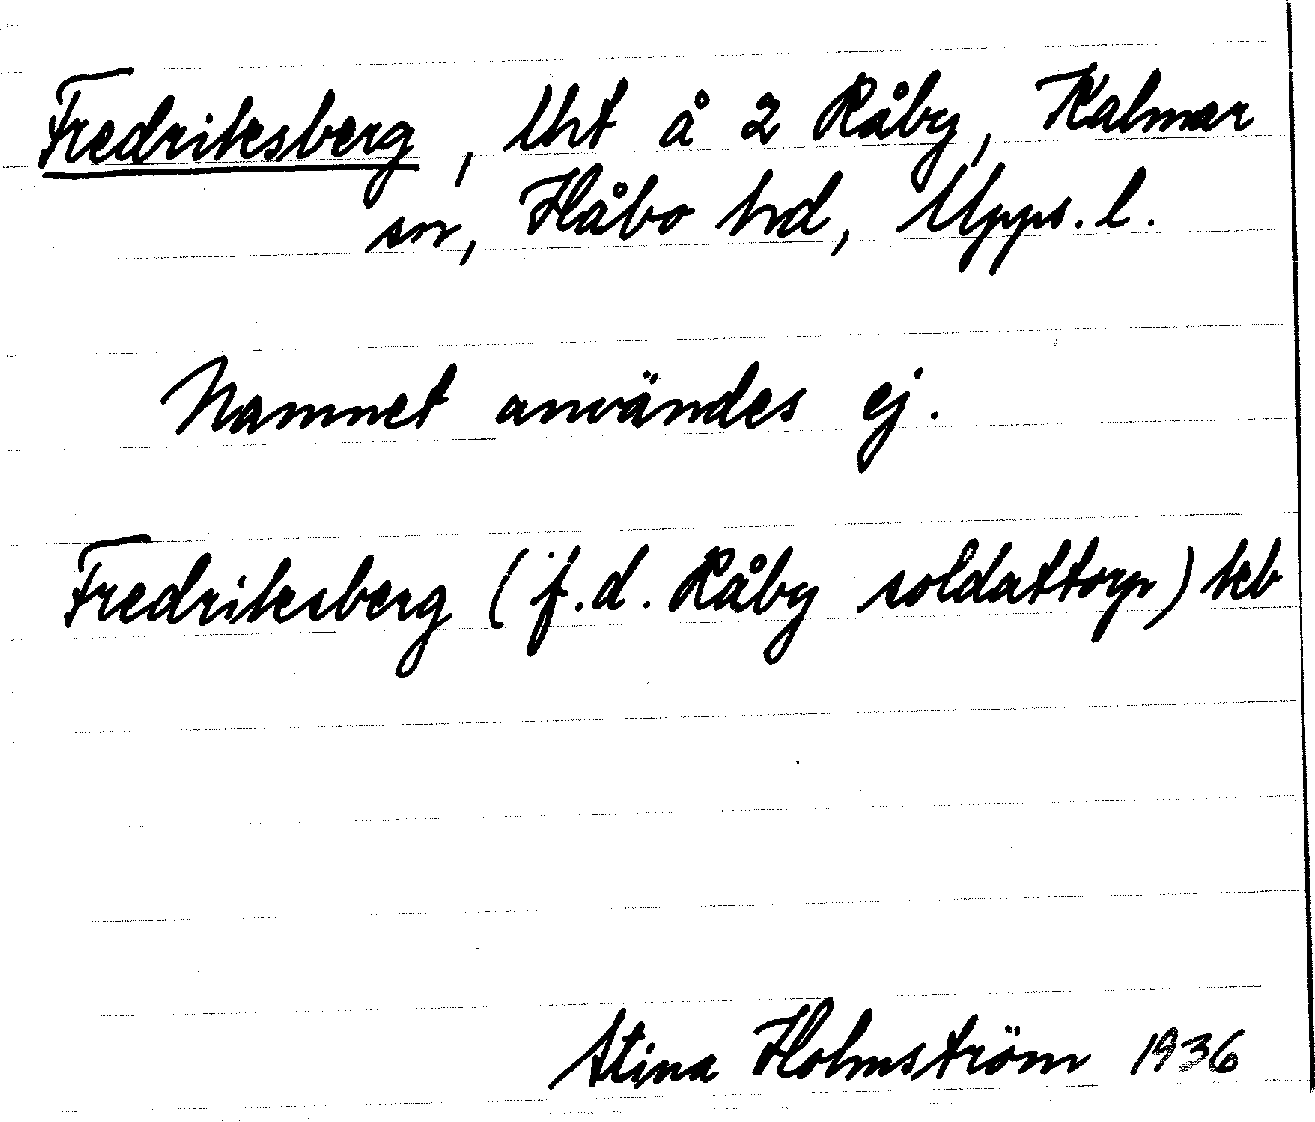 Fredriksberg, lht å 2 Råby, Kalmar
sn, Håbo hd, Upps. l.
Namnet användes ej.
Fredriksberg (f.d. Råby soldattorp) kb
Stina Holmström 1936